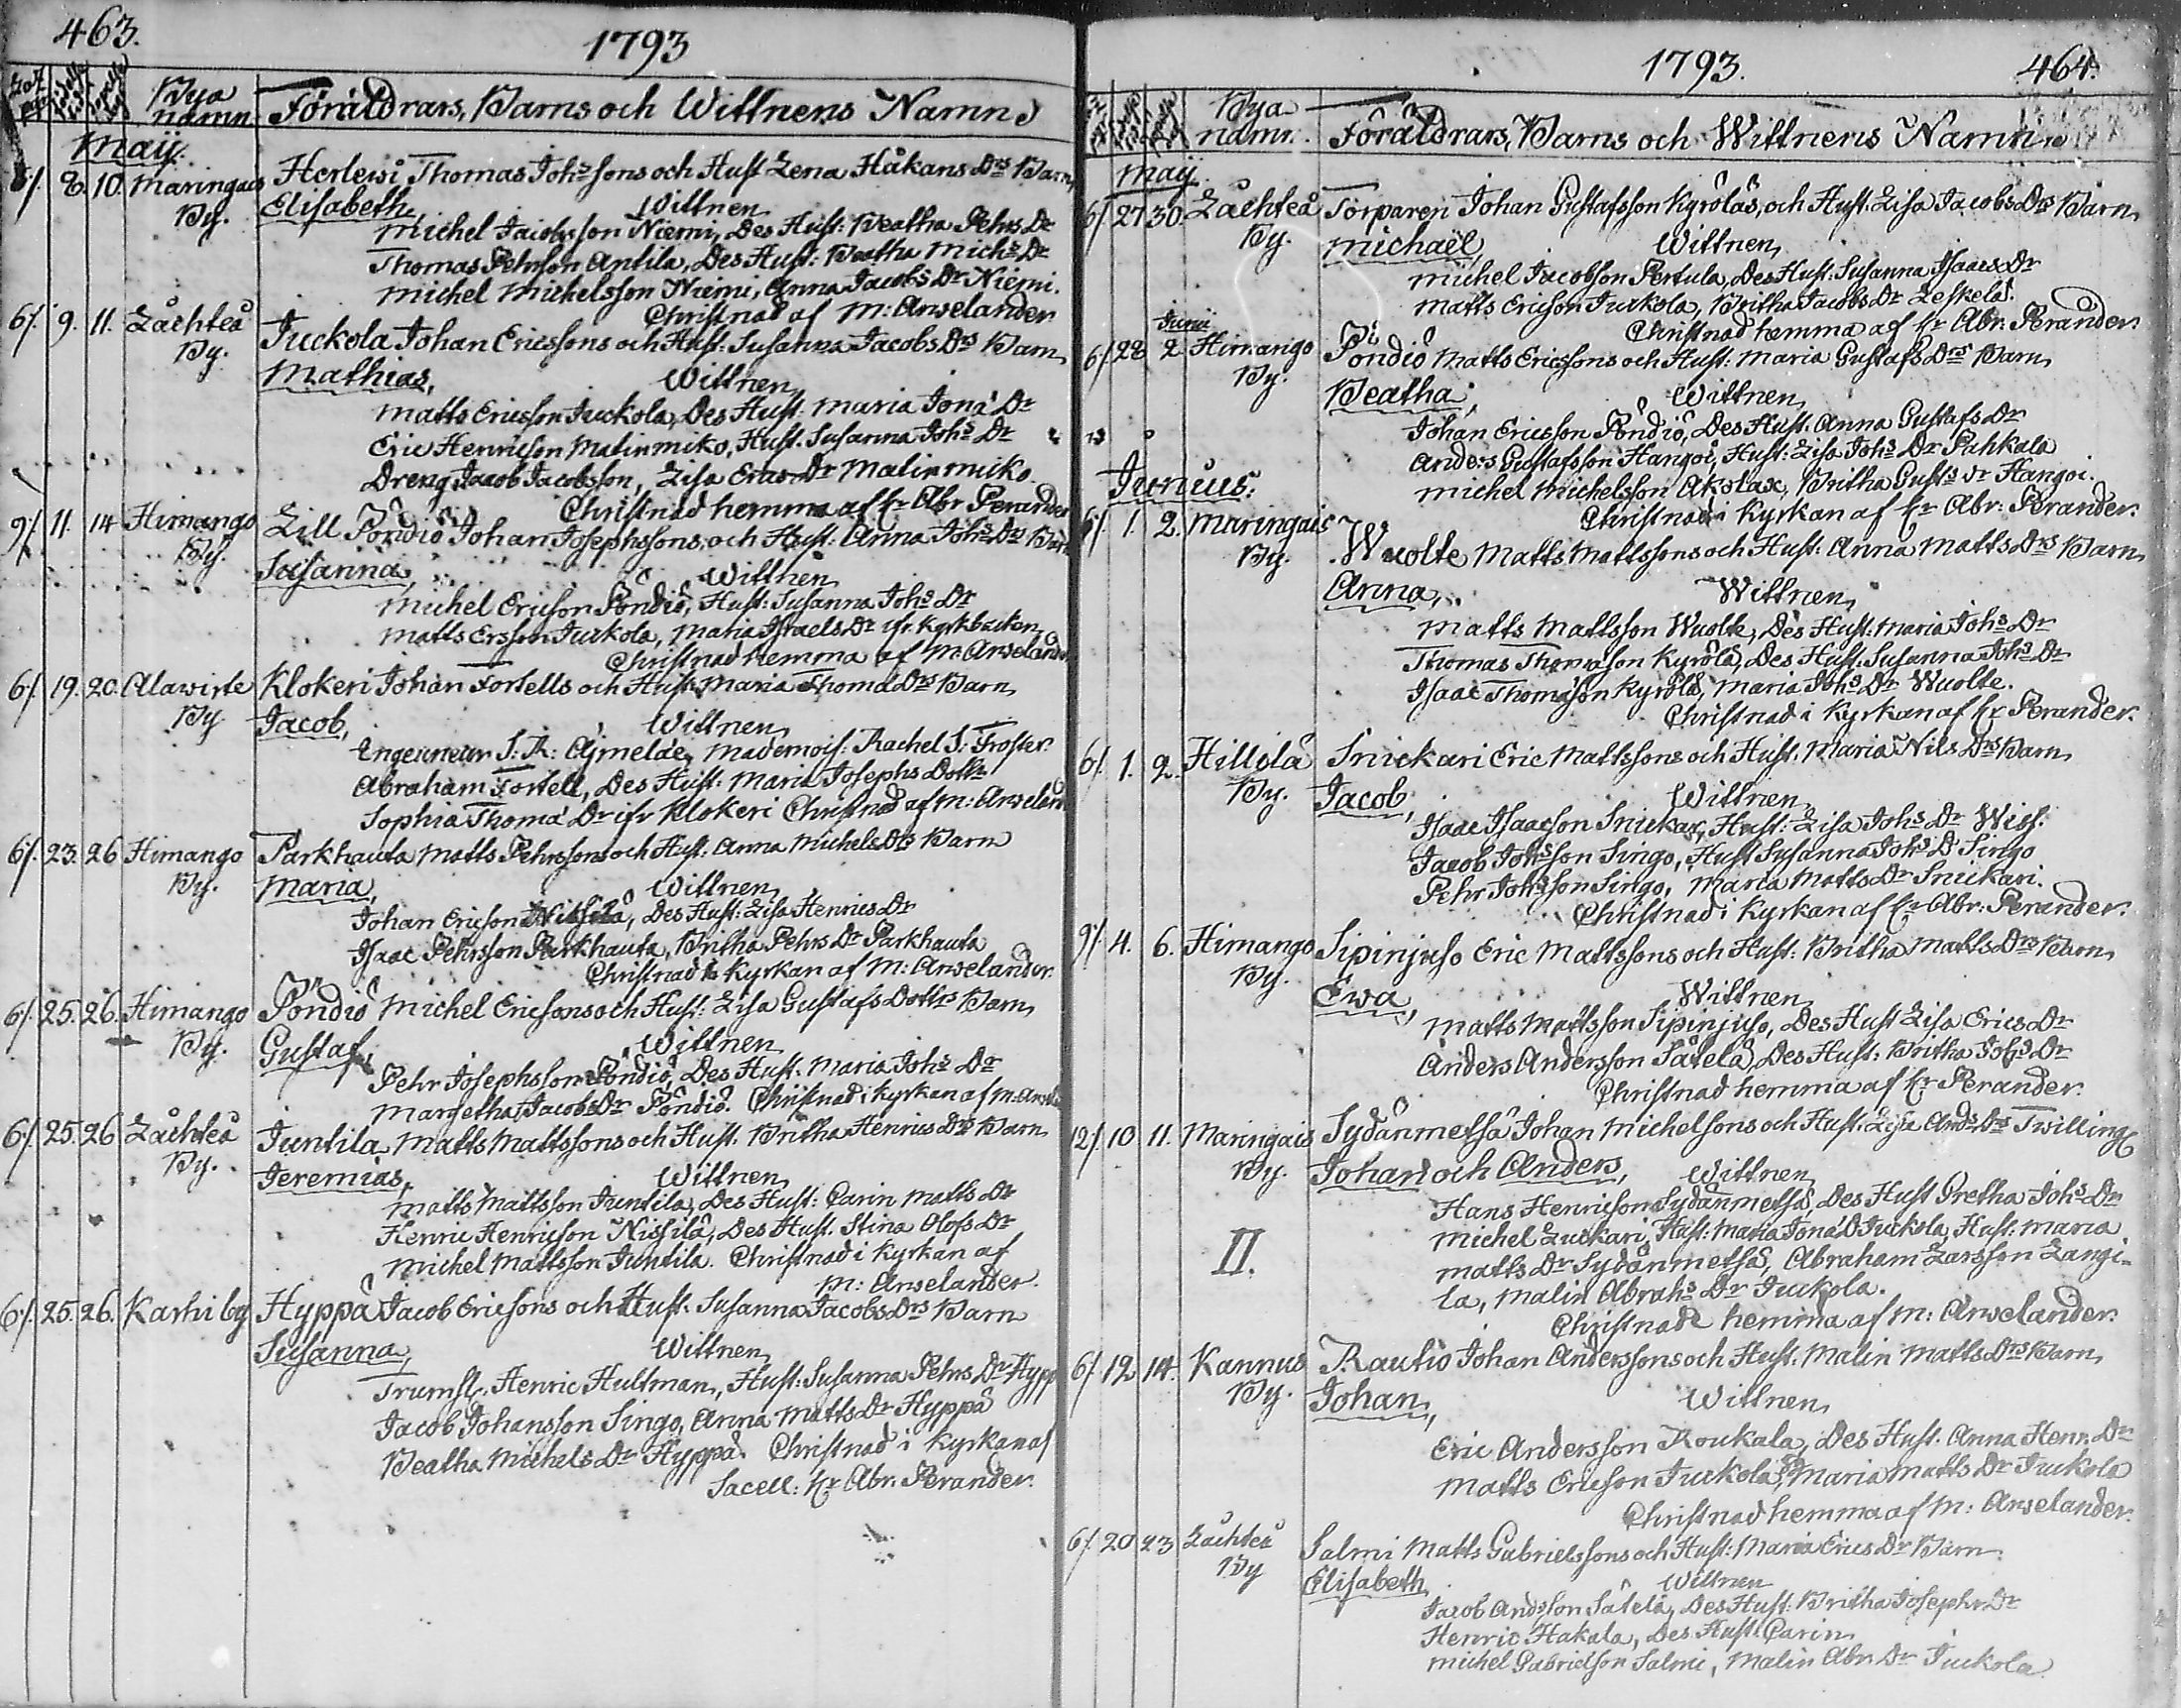 463.
1793
Bya namn
Föräldrars, Barns och Wittnens Namn
Maÿ.
8. 10. Maringais By.
Herlewi Thomas Johsons och Hust Lena Håkans Drs Barn
Elisabeth, Wittnen
Michel Jacobsson Niemi, Des Hust: Beatha Pehrs Dr
Thomas Pehrsson Antila, Des Hust: Beatha Michs Dr
Michel Michelsson Niemi, Anna Jacobs Dr Niemi.
Christnad af M: Anselander
6/. 9. 11. Låchteå By.
Juckola Johan Ericssons och Hust: Susanna Jacobs Drs Barn
Mathias, Wittnen
Matts Ericsson Juckola, Des Hust: Maria Jona Dr
Eric Henricsson Malinmiko, Hust. Susanna Johs Dr
Dreng Jacob Jacobsson, Lisa Erics Dr Malinmiko
Christnad hemma af Hr Abr Perander
9/. 11. 14 Himango By.
Lill Pöndiö Johan Josephssons, och Hust: Anna Johs Drs Barn
Susanna, Wittnen
Michel Ericson Pöndiö, Hust: Susanna Johs Dr
Matts Ersson Juckola, Maria Israels Dr ifr. Kyrkbacken
Christnad hemma af M. Anselander
6/. 19. 20. Alawirte By
Klokeri Johan Fortells och Hust: Maria Thoma Drs Barn
Jacob, Wittnen
Ingenieur S: R: Ajmelæ, Mademois: Rachel S: Froster
Abraham Fortell, Des Hust: Maria Josephs Dottr
Sophia Thoma Dr ifr Klokeri Christnad af M: Anseland
6/. 23. 26 Himango By.
Parkhauta Matts Pehrssons och Hust: Anna Michels Drs Barn
Maria, Wittnen
Johan Ericson Nissilä, Des Hust: Lisa Henrics Dr
Isaac Pehrsson Parkhauta, Britha Pehrs Dr Parkhauta
Christnad i Kyrkan af M: Anselander
6/. 25. 26. Himango By.
Pöndiö Michel Ericsons och Hust: Lisa Gustafs Dottrs Barn
Gustaf, Wittnen
Pehr Josephsson Pöndiö, Des Hust. Maria Johs Dr
Margetha Jacobs Dr Pöndiö. Christnad i kyrkan af M. Ansela
6/. 25. 26 Låchteå By.
Juntila Matts Mattssons och Hust. Britha Henrics Drs Barn
Jeremias, Wittnen
Matts Mattsson Juntila, Des Hust: Carin Matts Dr
Henric Henricson Nissilä, Des Hust. Stina Olofs Dr
Michel Mattsson Juntila. Christnad i Kyrkan af
M: Anselander.
6/. 25. 26. Karhi by
Hyppä Jacob Ericsons och Hust. Susanna Jacobs Drs Barn
Susanna, Wittnen
Trumsl. Henric Hultman, Hust: Susanna Pehrs Dr Hypp
Jacob Johansson Singo, Anna Matts Dr Hyppä
Beatha Michels Dr Hyppä. Christnad i Kyrkan af
Sacell: Hr Abr. Perander.
1793. 464.
Bya namn.
Föräldrars, Barns och Wittnens Namn
Maÿ
6/. 27 30. Låchteå By.
Torparen Johan Gustafsson Kyröläs, och Hust: Lisa Jacobs Drs Barn
Michaël, Wittnen
Michel Jacobson Pertula, Des Hust: Susanna Isaacs Dr
Matts Ericson Juckola, Britha Jacobs Dr Leskelä.
Christnad hemma af Hr Abr: Perander.
Junii
6/. 28 2 Himango By.
Pöndiö Matts Ericssons och Hust: Maria Gustafs Drs Barn
Beatha, Wittnen
Johan Ericsson Pöndiö, Des Hust. Anna Gustafs Dr
Anders Gustafsson Hangoi, Hust: Lisa Johs Dr Pahkala
Michel Michelsson Akolax, Britha Gusts Dr Hangoi.
Christnad i Kyrkan af Hr Abr: Perander.
Junius:
6/. 1. 2. Maringais By.
Wuolte Matts Mattssons och Hust: Anna Matts Drs Barn
Anna, Wittnen
Matts Mattsson Wuolte, Des Hust: Maria Johs Dr
Thomas Thomasson Kyrölä, Des Hust. Susanna Johs Dr
Isaac Thomasson Kyrölä, Maria Johs Dr Wuolte.
Christnad i Kyrkan af Hr Perander.
6/. 1. 2. Hillilä By.
Snickari Eric Mattssons och Hust. Maria Nils Drs Barn
Jacob, Wittnen
Isaac Isaacson Snickar, Hust: Lisa Johs Dr Wiss.
Jacob Johsson Singo, Hust Susanna Johs Dr Singo
Pehr Johsson Singo, Maria Matts Dr Snickari.
Christnad i Kyrkan af Hr Abr: Perander.
9/. 4. 6. Himango By.
Sipinjuso Eric Mattssons och Hust: Britha Matts Drs Barn
Ewa, Wittnen
Matts Mattsson Sipinjuso, Des Hust Lisa Erics Dr
Anders Andersson Såtelä, Des Hust: Britha Johs Dr
Christnad hemma af Hr Perander.
12/. 10 11. Maringais By.
Sydänmetsä Johan Michelsons och Hust. Lisa Ands Drs Twilling
Johan och Anders, Wittnen
Hans Henricson Sydänmetsä, Des Hust Gretha Johs Dr
Michel Luckari, Hust: Maria Jona D Juckola, Hust: Maria
II.
Matts Dr Sydänmetsä, Abraham Larsson Langi-
la, Malin Abrahs Dr Juckola.
Christnade hemma af M: Anselander.
6/. 12 14. Kannus By.
Rautio Johan Anderssons och Hust. Malin Matts Drs Barn
Johan, Wittnen
Eric Andersson Roukala, Des Hust. Anna Henr. Dr
Matts Ericson Juckola, Maria Matts Dr Juckola
Christnad hemma af M: Anselander.
6/. 20 23 Låchteå By
Salmi Matts Gabrielssons och Hust: Maria Erics Dr Barn
Elisabeth, Wittnen
Jacob Andsson Såtelä, Des Hust: Britha Josephs Dr
Henric Hakala, Des Hust Carin
Michel Gabrielson Salmi, Malin Abr. Dr Juckola